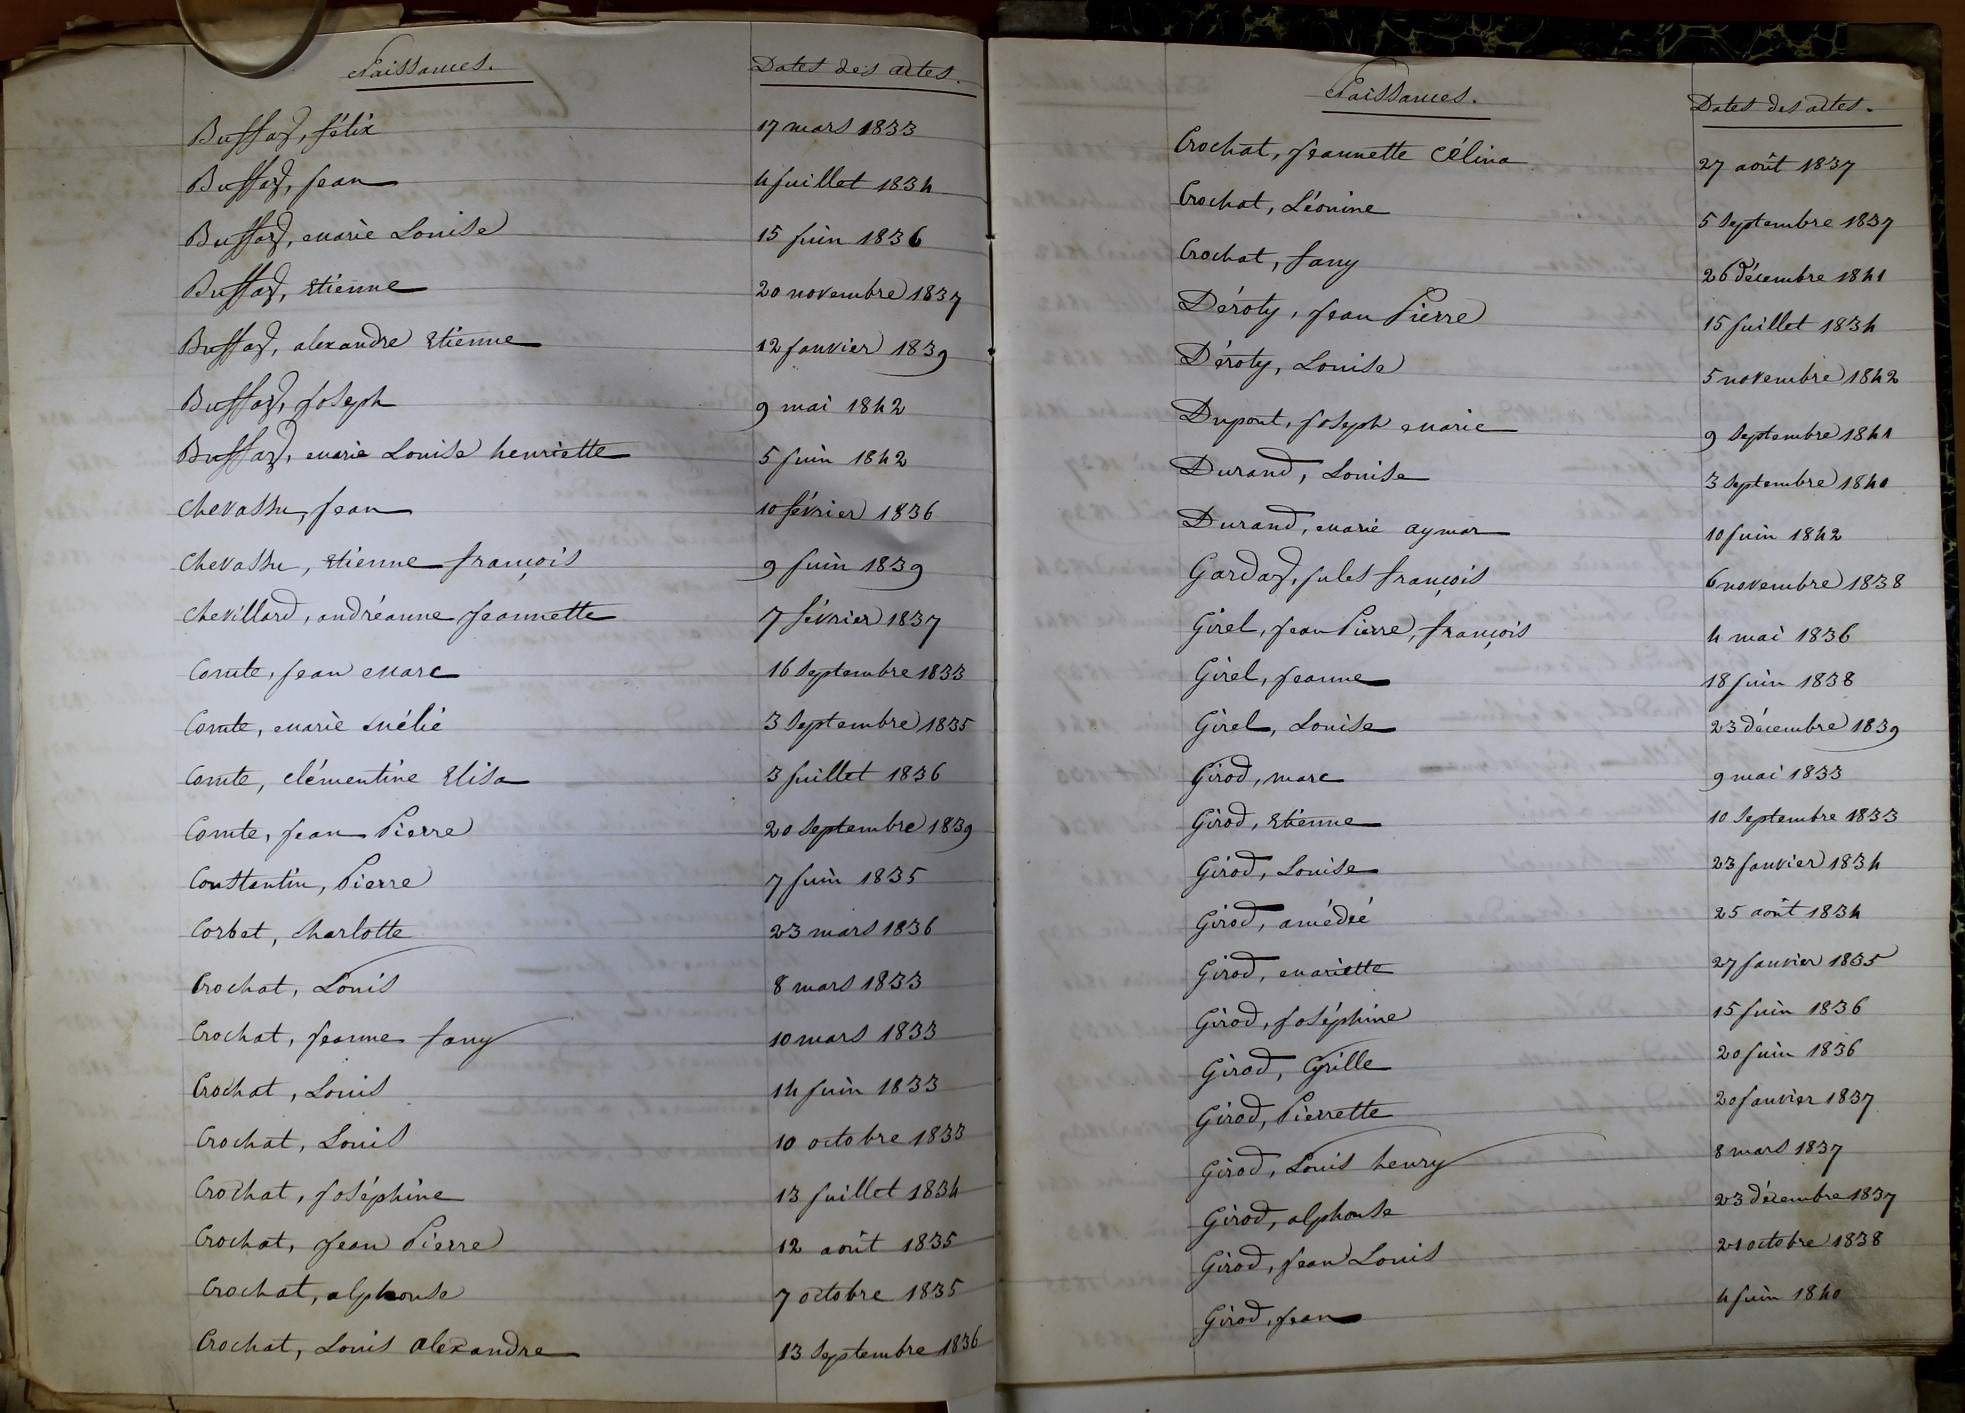 Naissances. Dates des actes.
Buffard, félix 17 mars 1833
Buffard, jean 4 juillet 1834
Buffard, marie Louise 15 juin 1836
Buffard, etienne 20 novembre 1837
Buffard, alexandre etienne 12 janvier 1839
Buffard, joseph 9 mai 1842
Buffard, marie Louise henriette 5 juin 1842
Chevassu, jean 10 février 1836
Chevassu, etienne françois 9 juin 1839
Chevillard, andréanne jeannette 7 février 1837
Comte, jean marc 16 septembre 1833
Comte, marie mélie 3 septembre 1835
Comte, clémentine Elisa 3 juillet 1836
Comte, jean Pierre 20 septembre 1839
Constantin, Pierre 7 juin 1835
Corbet, charlotte 23 mars 1836
Crochat, Louis 8 mars 1833
Crochat, jeanne fany 10 mars 1833
Crochat, Louis 14 juin 1833
Crochat, Louis 10 octobre 1833
Crochat, joséphine 13 juillet 1834
Crochat, jean Pierre 12 août 1835
Crochat, alphonse 7 octobre 1835
Crochat, Louis alexandre 13 septembre 1836
Naissances. Dates des actes.
Crochat, jeannette célina 27 août 1837
Crochat, Léonine 5 septembre 1837
Crochat, fany 26 décembre 1841
Déroty, jean Pierre 15 juillet 1834
Déroty, Louise 5 novembre 1842
Dupont, joseph marie 9 septembre 1841
Durand, Louise 3 septembre 1840
Durand, marie aymar 10 juin 1842
Gardas, jules françois 6 novembre 1838
Girel, jean Pierre, françois 4 mai 1836
Girel, jeanne 18 juin 1838
Girel, Louise 23 décembre 1839
Girod, marc 9 mai 1833
Girod, etienne 10 septembre 1833
Girod, Louise 23 janvier 1834
Girod, amédée 25 août 1834
Girod, mariette 27 janvier 1835
Girod, joséphine 15 juin 1836
Girod, Cyrille 20 juin 1836
Girod, Pierrette 20 janvier 1837
Girod, Louis henry 8 mars 1837
Girod, alphonse 23 décembre 1837
Girod, jean Louis 21 octobre 1838
Girod, jean 4 juin 1840